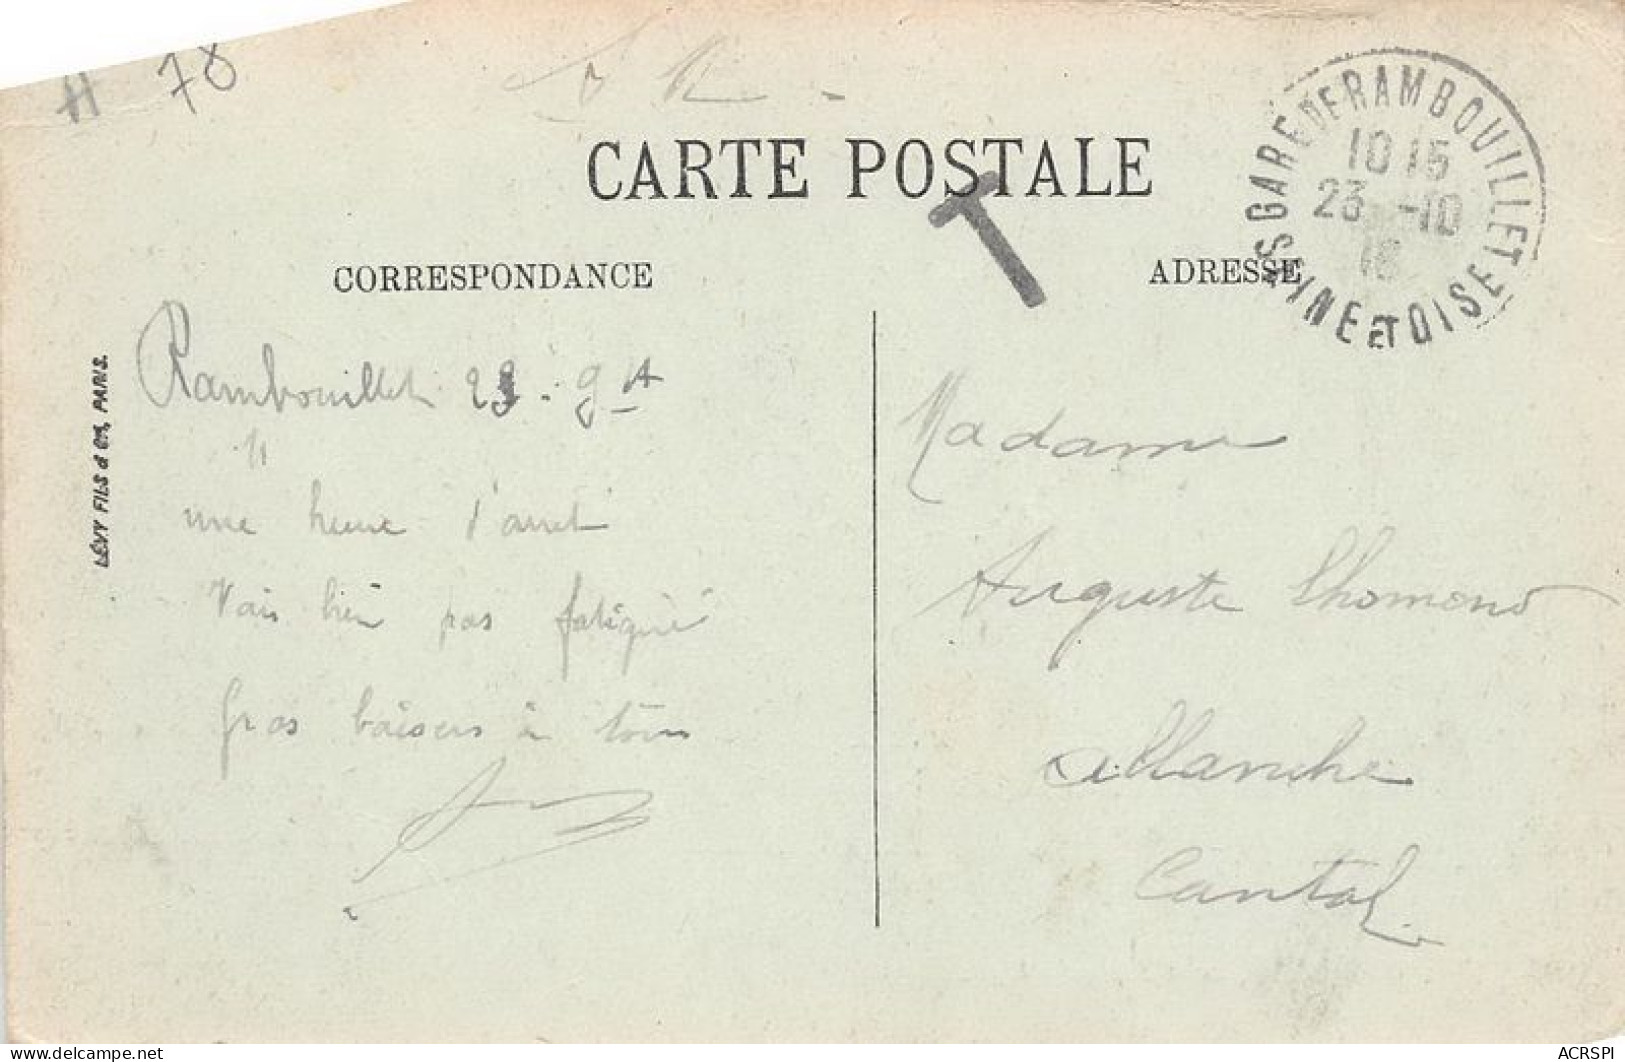 78
CARTE POSTALE
GARE DE RAMBOUILLET
10 15
23 -10
SEINE ET OISE
CORRESPONDANCE
ADRESSE
LÉVY FILS & Cie, PARIS.
Rambouillet 23
une heure d'arret
Vais bien pas fatigué
Gros baisers à tous
Madame
Auguste
Allanche
Cantal
ACRSPI